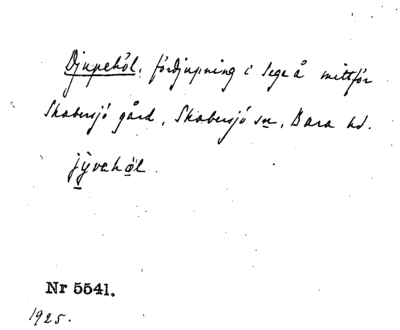 Djupehöl, fördjupning i Sege å mittför
Skabersjö gård, Skabersjö sn, Bara hd.
jȳvahöl.
Nr 5541.
1925.